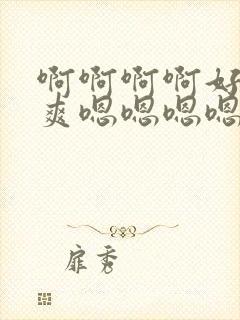 啊啊啊啊好
爽嗯嗯嗯嗯
扉秀